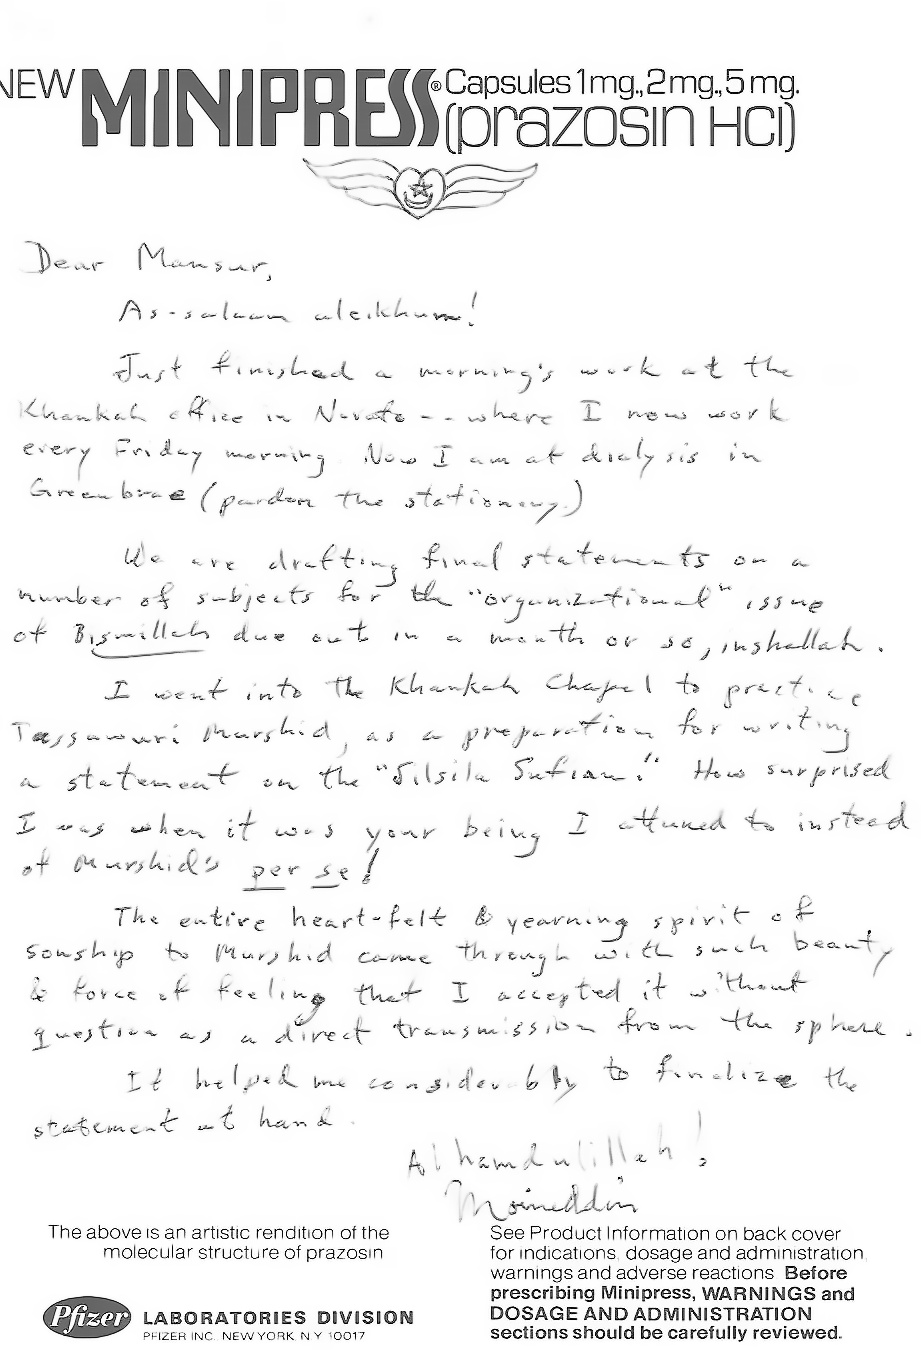 NEW MINIPRESS® Capsules 1mg., 2mg., 5mg.
(prazosin HCl)
Dear Mansur,
As-salaam aleikhum!
Just finished a morning's work at the
Khankah office in Novato -- where I now work
every Friday morning. Now I am at dialysis in
Greenbrae (pardon the stationery.)
We are drafting final statements on a
number of subjects for the "organizational" issue
of Bismillah due out in a month or so, inshallah.
I went into the Khankah Chapel to practice
Tassawuri Murshid, as a preparation for writing
a statement on the "Silsila Sufian." How surprised
I was when it was your being I attuned to instead
of Murshid's per se!
The entire heart-felt & yearning spirit of
sonship to Murshid came through with such beauty
& force of feeling that I accepted it without
question as a direct transmission from the sphere.
It helped me considerably to finalize the
statement at hand.
Alhamdulillah!
Moineddin
The above is an artistic rendition of the
molecular structure of prazosin
See Product Information on back cover
for indications, dosage and administration,
warnings and adverse reactions. Before
prescribing Minipress, WARNINGS and
DOSAGE AND ADMINISTRATION
sections should be carefully reviewed.
Pfizer LABORATORIES DIVISION
PFIZER INC. NEW YORK, N.Y. 10017